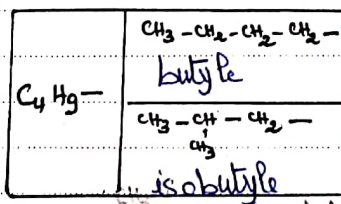 C₄H₉—
CH₃-CH₂-CH₂-CH₂-
butyle
CH₃-CH-CH₂-
CH₃
isobutyle